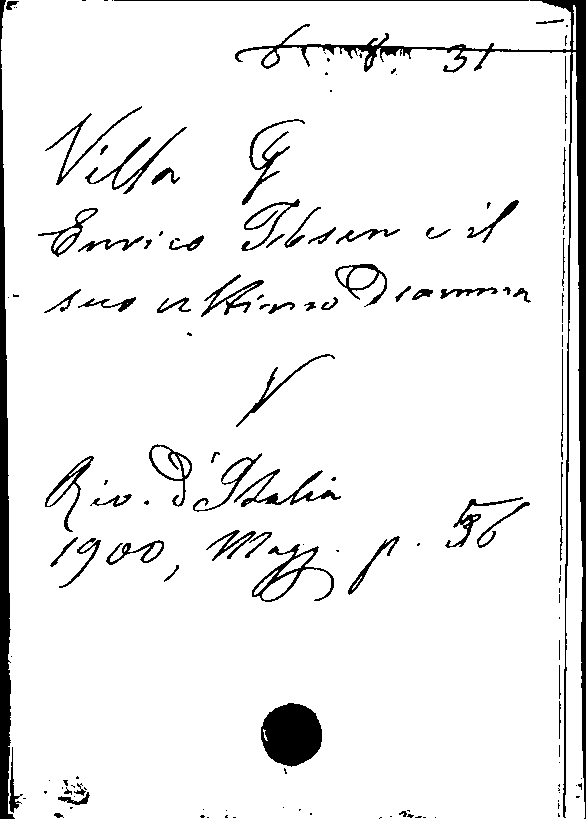 6. 8. 31
Villa G
Enrico Ibsen e il
suo ultimo Dramma
V
Riv. d'Italia
1900, Magg. p. 56